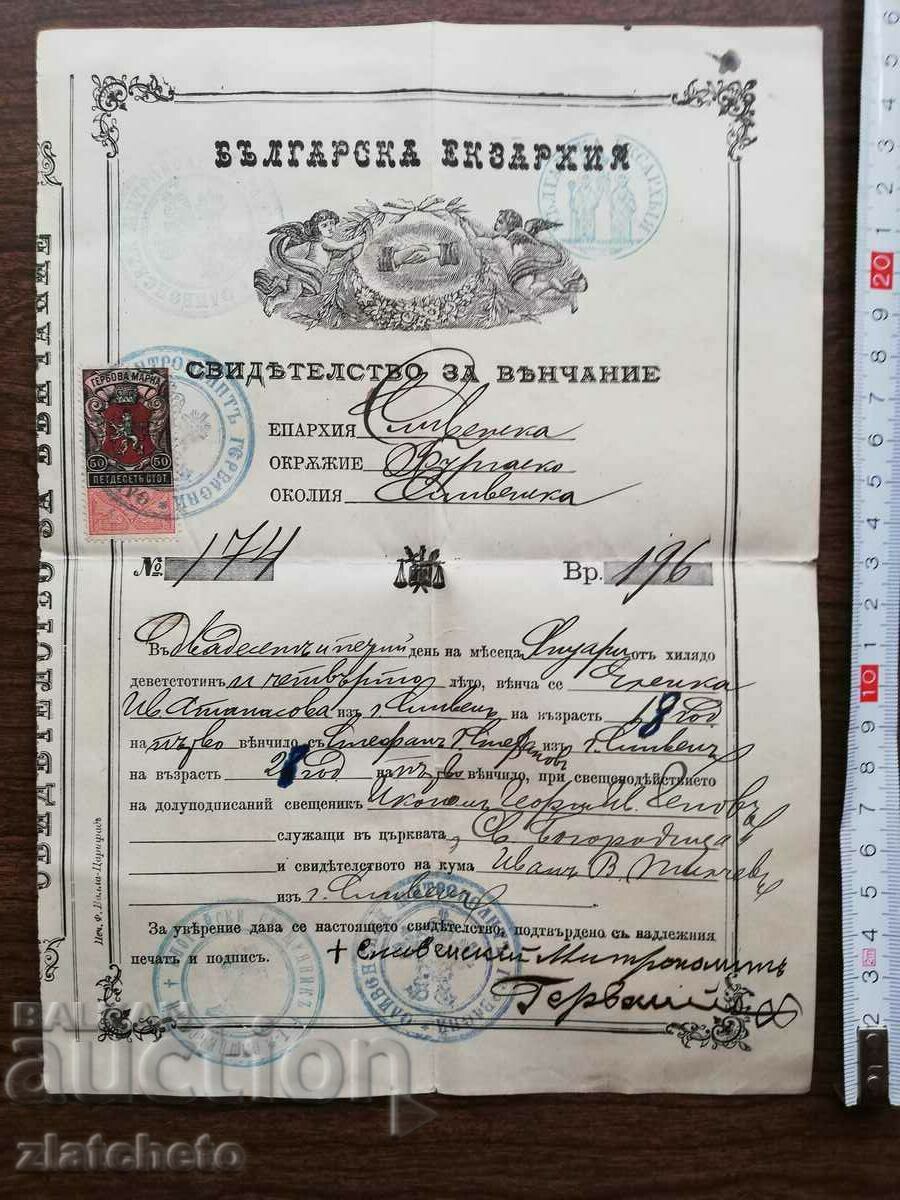 БЪЛГАРСКА ЕКЗАРХИЯ
СВИДѢТЕЛСТВО ЗА ВѢНЧАНИЕ
ГЕРБОВА МАРКА
50 50
ПЕТДЕСЕТЬ СТОТ.
ЕПАРХИЯ Сливенска
ОКРѪЖИЕ Бургаско
ОКОЛИЯ Сливенска
№ 174 Вр. 196
Въ двадесеть и първий день на мѣсеца Януари отъ хилядо
деветстотин и четвърто лѣто, вѣнча се Еленка
Ив. Атанасова изъ г. Сливенъ на възрасть 18 год
на първо вѣнчило съ Стефанъ изъ г. Сливенъ
на възрасть 28 год на първо вѣнчило, при свещенодѣйствието
на долуподписаний свещеникъ Икономъ Георги Ив.
служащи въ църквата Св. Богородица
и свидѣтелството на кума Иванъ В.
изъ г. Сливенъ
За увѣрение дава се настоящето свидѣтелство, подтвърдено съ надлежния
печать и подпис. + Сливенский Митрополитъ
Гервасий
СВИДѢТЕЛСТВО ЗА ВѢНЧАНИЕ
BALKAN
auction
zlatcheto
1 2 3 4 5 6 7 8 9 10 1 2 3 4 5 6 7 8 9 20 1 2 3 4 5 6